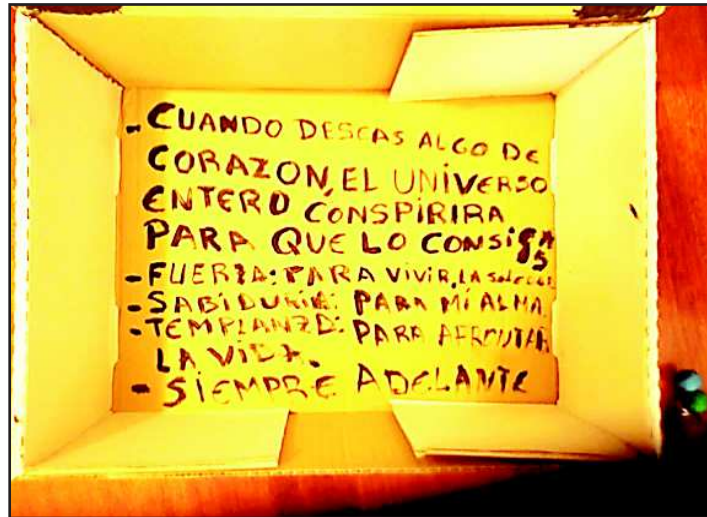 - CUANDO DESEAS ALGO DE
CORAZON, EL UNIVERSO
ENTERO CONSPIRIRA
PARA QUE LO CONSIGAS
- FUERZA: PARA VIVIR, LA
- SABIDURIA: PARA MI ALMA.
- TEMPLANZA: PARA AFRONTAR
LA VIDA.
- SIEMPRE ADELANTE